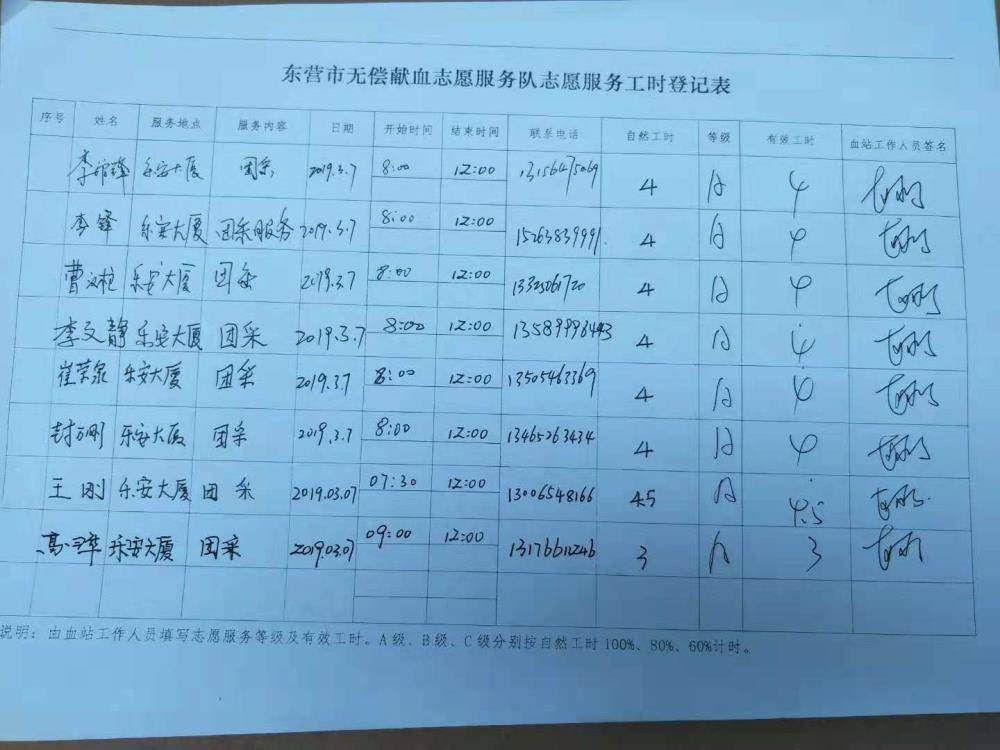 东营市无偿献血志愿服务队志愿服务工时登记表
序号 姓名 服务地点 服务内容 日期 开始时间 结束时间 联系电话 自然工时 等级 有效工时 血站工作人员签名
乐安大厦 团采 2019.3.7 8:00 12:00 13156475069 4 A 4
李锋 乐安大厦 团采服务 2019.3.7 8:00 12:00 15263839991 4 A 4
乐安大厦 团采 2019.3.7 8:00 12:00 4 A 4
李文静 乐安大厦 团采 2019.3.7 8:00 12:00 4 A 4
崔荣泉 乐安大厦 团采 2019.3.7 8:00 12:00 13505463369 4 A 4
封万刚 乐安大厦 团采 2019.3.7 8:00 12:00 13465263434 4 A 4
王刚 乐安大厦 团采 2019.03.07 07:30 12:00 13006548166 4.5 A 4.5
乐安大厦 团采 2019.03.07 09:00 12:00 3 A 3
说明：由血站工作人员填写志愿服务等级及有效工时。A级、B级、C级分别按自然工时100%、80%、60%计时。